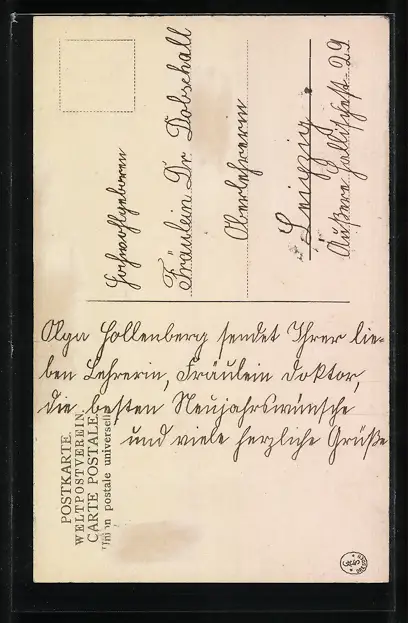 POSTKARTE.
WELTPOSTVEREIN.
CARTE POSTALE.
Union postale universelle
Hochwohlgeboren
Fräulein Dr Dobschall
Oberlehrerin
Leipzig.
Äußere Hallischestr. 29
Olga Hollenberg sendet Ihrer lie-
ben Lehrerin, Fräulein Doktor,
die besten Neujahrswünsche
und viele herzliche Grüße